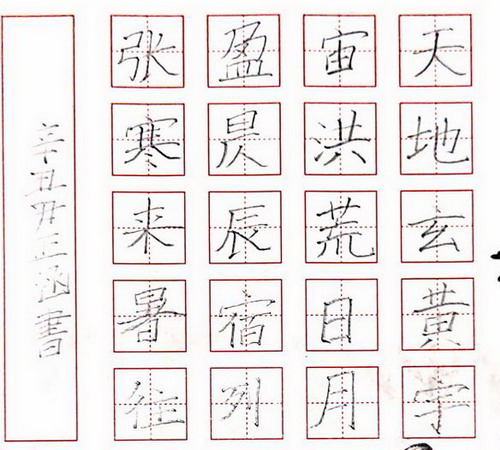 天地玄黄宇
宙洪荒日月
盈昃辰宿列
张寒来暑往
辛丑正函書